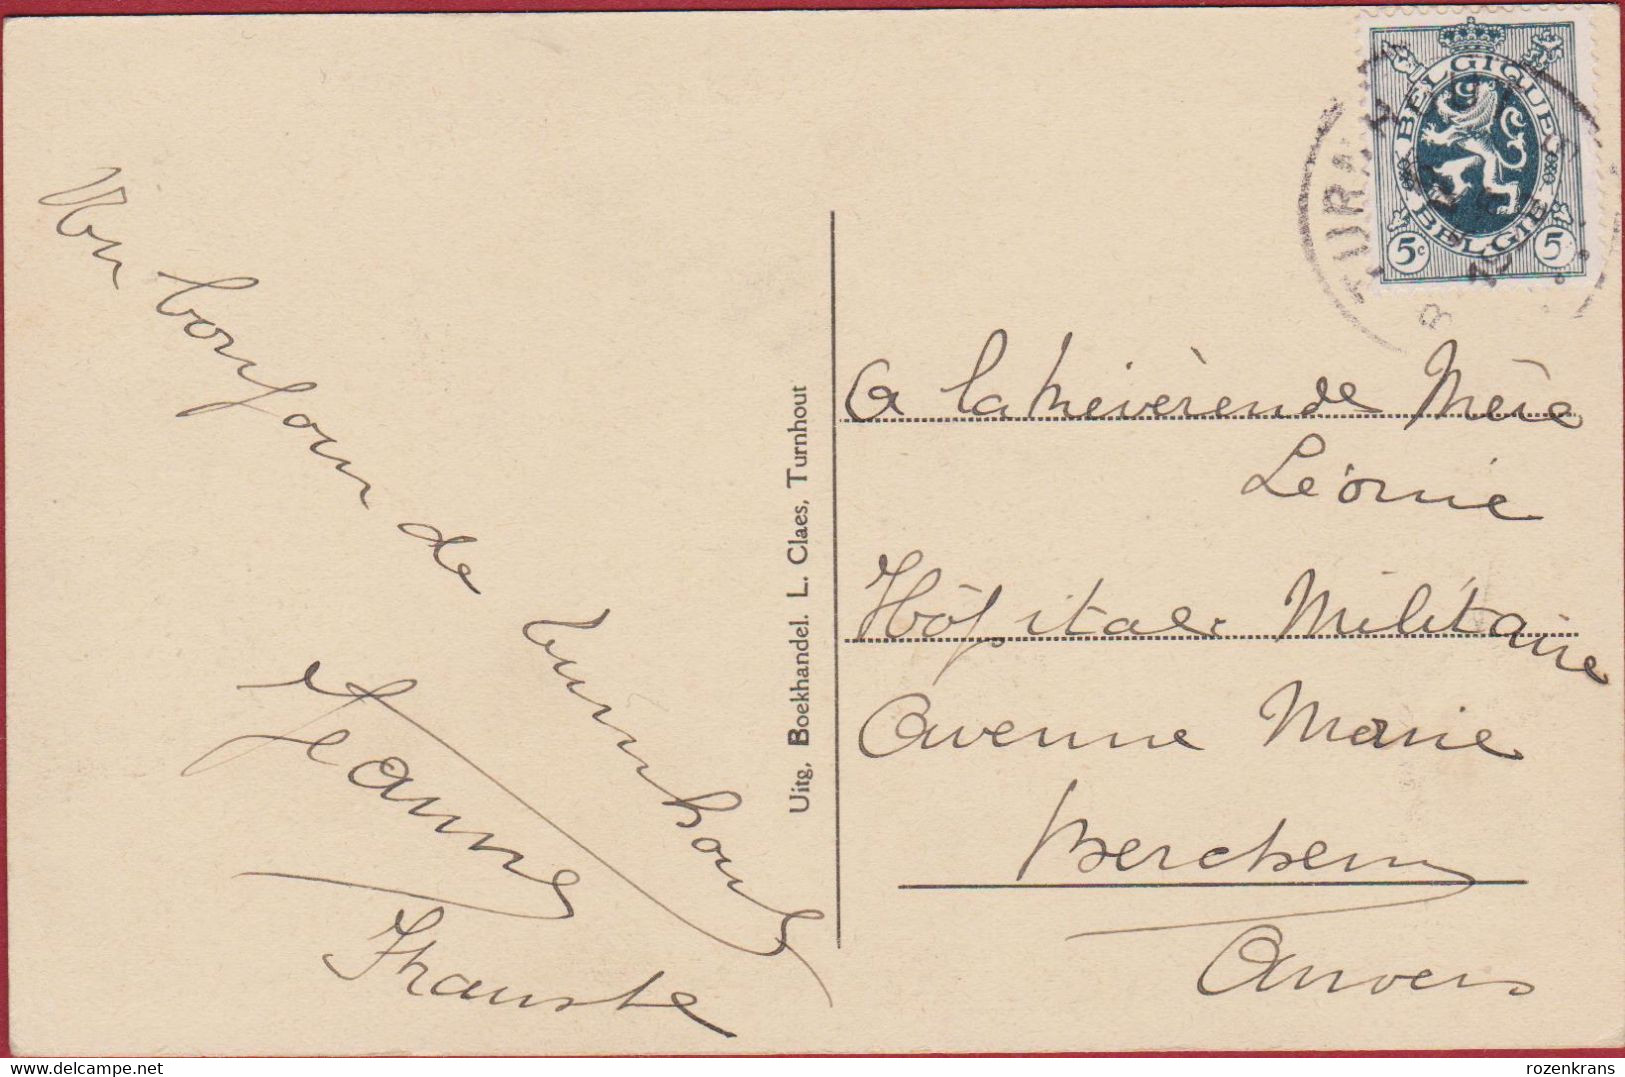 Un bonjour de turnhout
Jeanne
Uitg, Boekhandel. L. Claes, Turnhout
BELGIQUE
BELGIE
5c 5c
TURN
B
A la Révérende Mère
Léonie
Hôpital Militaire
Avenue Marie
Berchem
Anvers
delcampe.net
rozenkrans